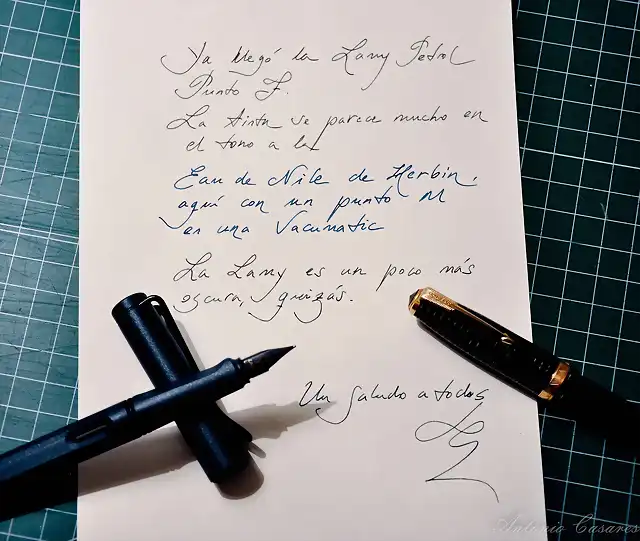 Ya llegó la Lamy Petrol
Punto F.
La tinta se parece mucho en
el tono a la
Eau de Nile de Herbin,
aquí con un punto M
en una Vacumatic
La Lamy es un poco más
oscura, quizás.
Un saludo a todos
Antonio Casares